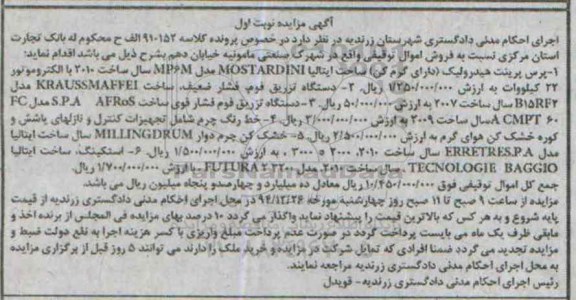 آگهی مزایده نوبت اول
اجرای احکام مدنی دادگستری شهرستان زرندیه در نظر دارد در خصوص پرونده کلاسه ۹۱۰۱۵۲ الف ح محکوم له بانک تجارت
استان مرکزی نسبت به فروش اموال توقیفی واقع در شهرک صنعتی مامونیه خیابان دهم بشرح ذیل می باشد اقدام نماید:
۱- پرس پرینت هیدرولیک (دارای گرم کن) ساخت ایتالیا MOSTARDINI مدل MP۶M سال ساخت ۲۰۱۰ با الکتروموتور
۲۲ کیلووات به ارزش ۱/۲۵۰/۰۰۰/۰۰۰ ریال. ۲- دستگاه تزریق فوم، فشار ضعیف، ساخت KRAUSSMAFFEI مدل
B۱۵RF۲ سال ساخت ۲۰۰۷ به ارزش ۵۰/۰۰۰/۰۰۰ ریال. ۳- دستگاه تزریق فوم فشار قوی ساخت S.P.A AFROS مدل FC
A CMPT ۶۰ سال ساخت ۲۰۰۹ به ارزش ۳/۰۰۰/۰۰۰/۰۰۰ ریال. ۴- خط رنگ چرم شامل تجهیزات کنترل و نازلهای پاشش و
کوره خشک کن هوای گرم به ارزش ۲/۵۰۰/۰۰۰/۰۰۰ ریال. ۵- خشک کن چرم دوار MILLINGDRUM سال ساخت ایتالیا
مدل ERRETRES.P.A سال ساخت ۲۰۱۰، ۲۰۰۰ × ۳۰۰۰، به ارزش ۱/۵۰۰/۰۰۰/۰۰۰ ریال. ۶- استکینگ، ساخت ایتالیا
TECNOLOGIE BAGGIO سال ساخت مدل FUTURA ۲ ۲۲۰۰ با ارزش ۱/۷۰۰/۰۰۰/۰۰۰ ریال.
جمع کل اموال توقیفی فوق ۱۰/۴۵۰/۰۰۰/۰۰۰ ریال معادل ده میلیارد و چهارصدو پنجاه میلیون ریال می باشد.
مزایده از ساعت ۹ صبح تا ۱۱ صبح روز چهارشنبه مورخه ۹۴/۱۲/۲۶ در محل اجرای احکام مدنی دادگستری زرندیه از قیمت
پایه شروع و به هر کس که بالاترین قیمت را پیشنهاد نماید واگذار می گردد ۱۰ درصد بهای مزایده فی المجلس از برنده اخذ و
مابقی ظرف یک ماه می بایست پرداخت گردد در صورت عدم پرداخت مبلغ واریزی با کسر هزینه اجرا به نفع دولت ضبط و
مزایده تجدید می گردد ضمنا افرادی که تمایل شرکت در مزایده و خرید ملک را دارند می توانند ۵ روز قبل از برگزاری مزایده
به محل اجرای احکام مدنی دادگستری زرندیه مراجعه نمایند.
رئیس اجرای احکام مدنی دادگستری زرندیه- قویدل